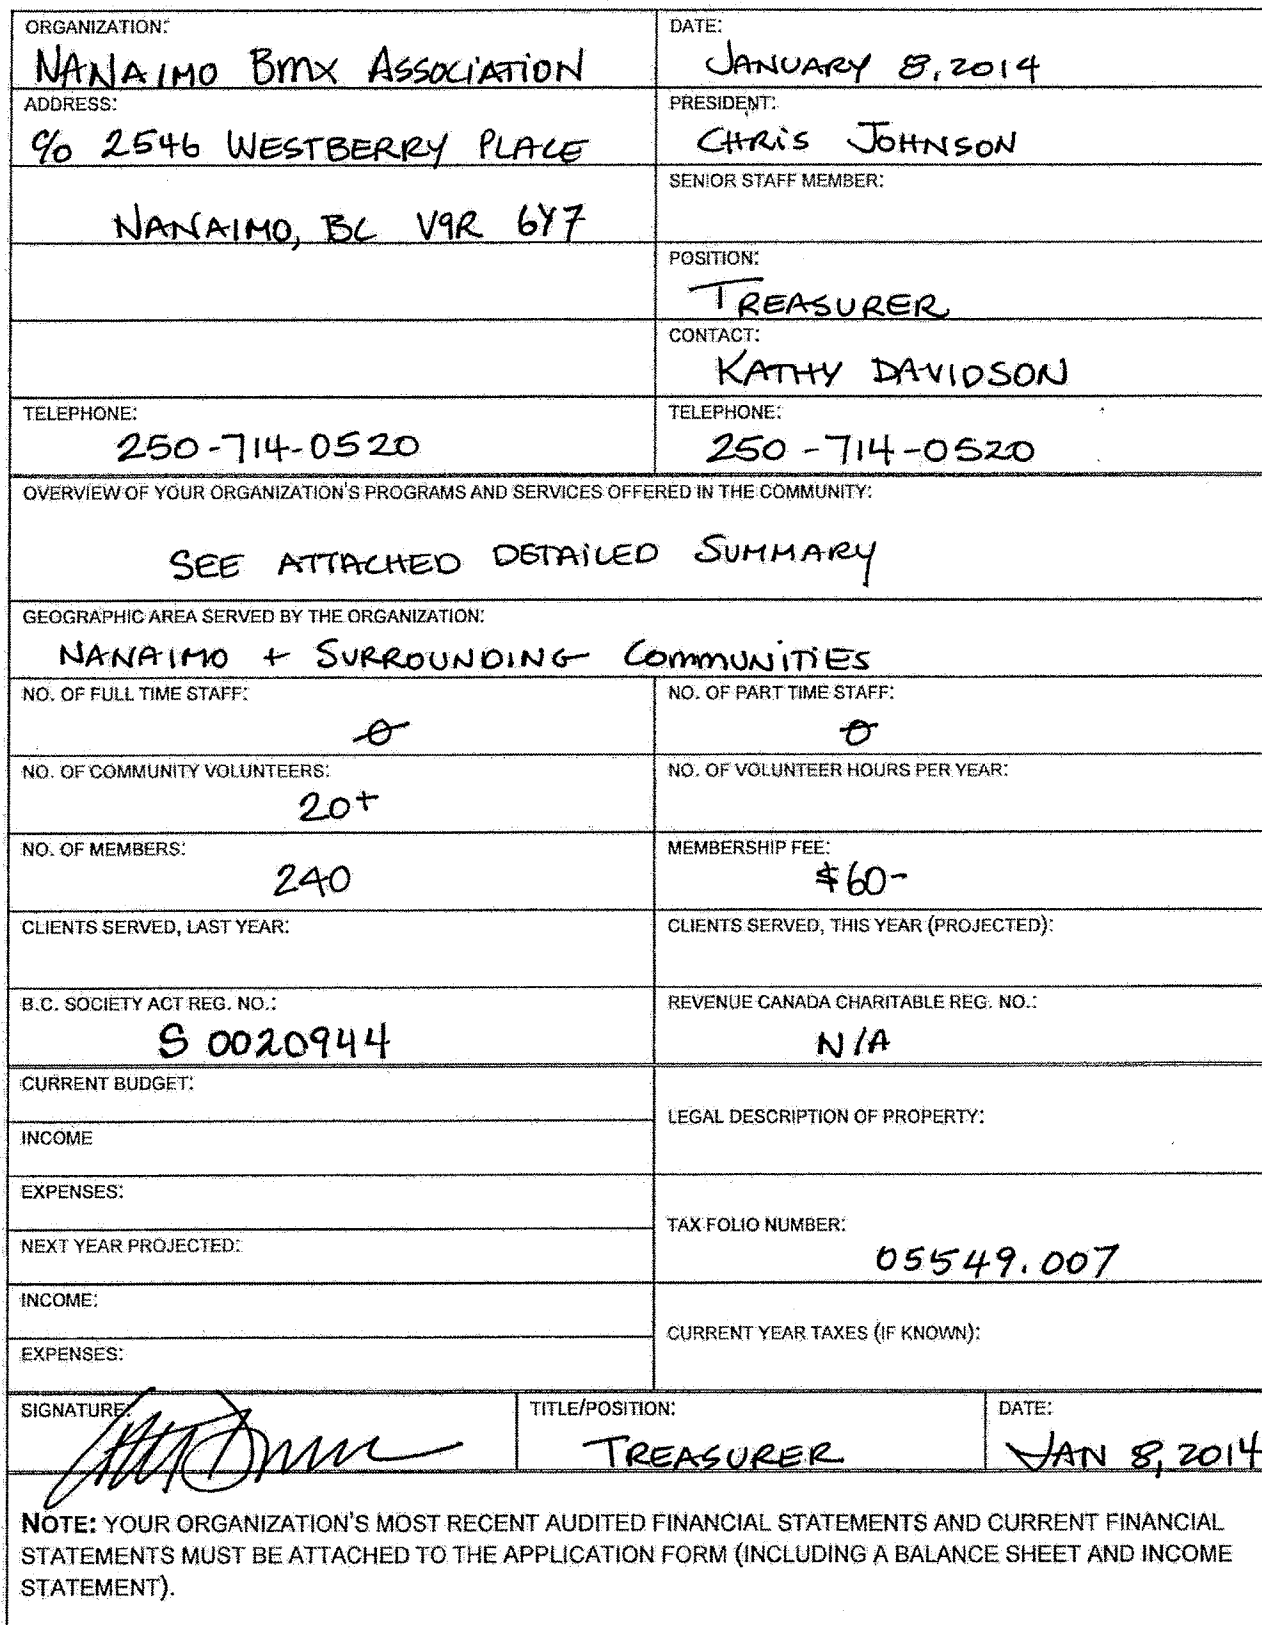 ORGANIZATION:
NANAIMO BMX ASSOCIATION
DATE:
JANUARY 8, 2014
ADDRESS:
c/o 2546 WESTBERRY PLACE
PRESIDENT:
CHRIS JOHNSON
NANAIMO, BC V9R 6Y7
SENIOR STAFF MEMBER:
POSITION:
TREASURER
CONTACT:
KATHY DAVIDSON
TELEPHONE:
250-714-0520
TELEPHONE:
250-714-0520
OVERVIEW OF YOUR ORGANIZATION'S PROGRAMS AND SERVICES OFFERED IN THE COMMUNITY:
SEE ATTACHED DETAILED SUMMARY
GEOGRAPHIC AREA SERVED BY THE ORGANIZATION:
NANAIMO + SURROUNDING COMMUNITIES
NO. OF FULL TIME STAFF:
0
NO. OF PART TIME STAFF:
0
NO. OF COMMUNITY VOLUNTEERS:
20+
NO. OF VOLUNTEER HOURS PER YEAR:
NO. OF MEMBERS:
240
MEMBERSHIP FEE:
$60-
CLIENTS SERVED, LAST YEAR:
CLIENTS SERVED, THIS YEAR (PROJECTED):
B.C. SOCIETY ACT REG. NO.:
S 0020944
REVENUE CANADA CHARITABLE REG. NO.:
N/A
CURRENT BUDGET:
INCOME
LEGAL DESCRIPTION OF PROPERTY:
EXPENSES:
NEXT YEAR PROJECTED:
TAX FOLIO NUMBER:
05549.007
INCOME:
EXPENSES:
CURRENT YEAR TAXES (IF KNOWN):
SIGNATURE:
TITLE/POSITION:
TREASURER
DATE:
JAN 8, 2014
NOTE: YOUR ORGANIZATION'S MOST RECENT AUDITED FINANCIAL STATEMENTS AND CURRENT FINANCIAL
STATEMENTS MUST BE ATTACHED TO THE APPLICATION FORM (INCLUDING A BALANCE SHEET AND INCOME
STATEMENT).